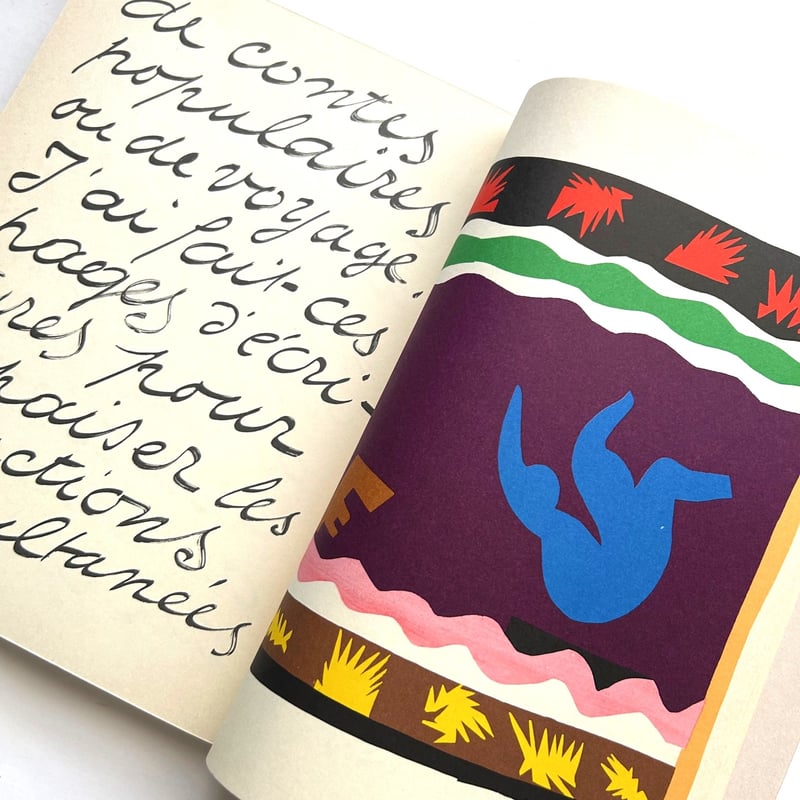 de contes
populaires
ou de voyage.
J'ai fait ces
pages d'écri-
ures pour
paiser les
ctions
ultanées